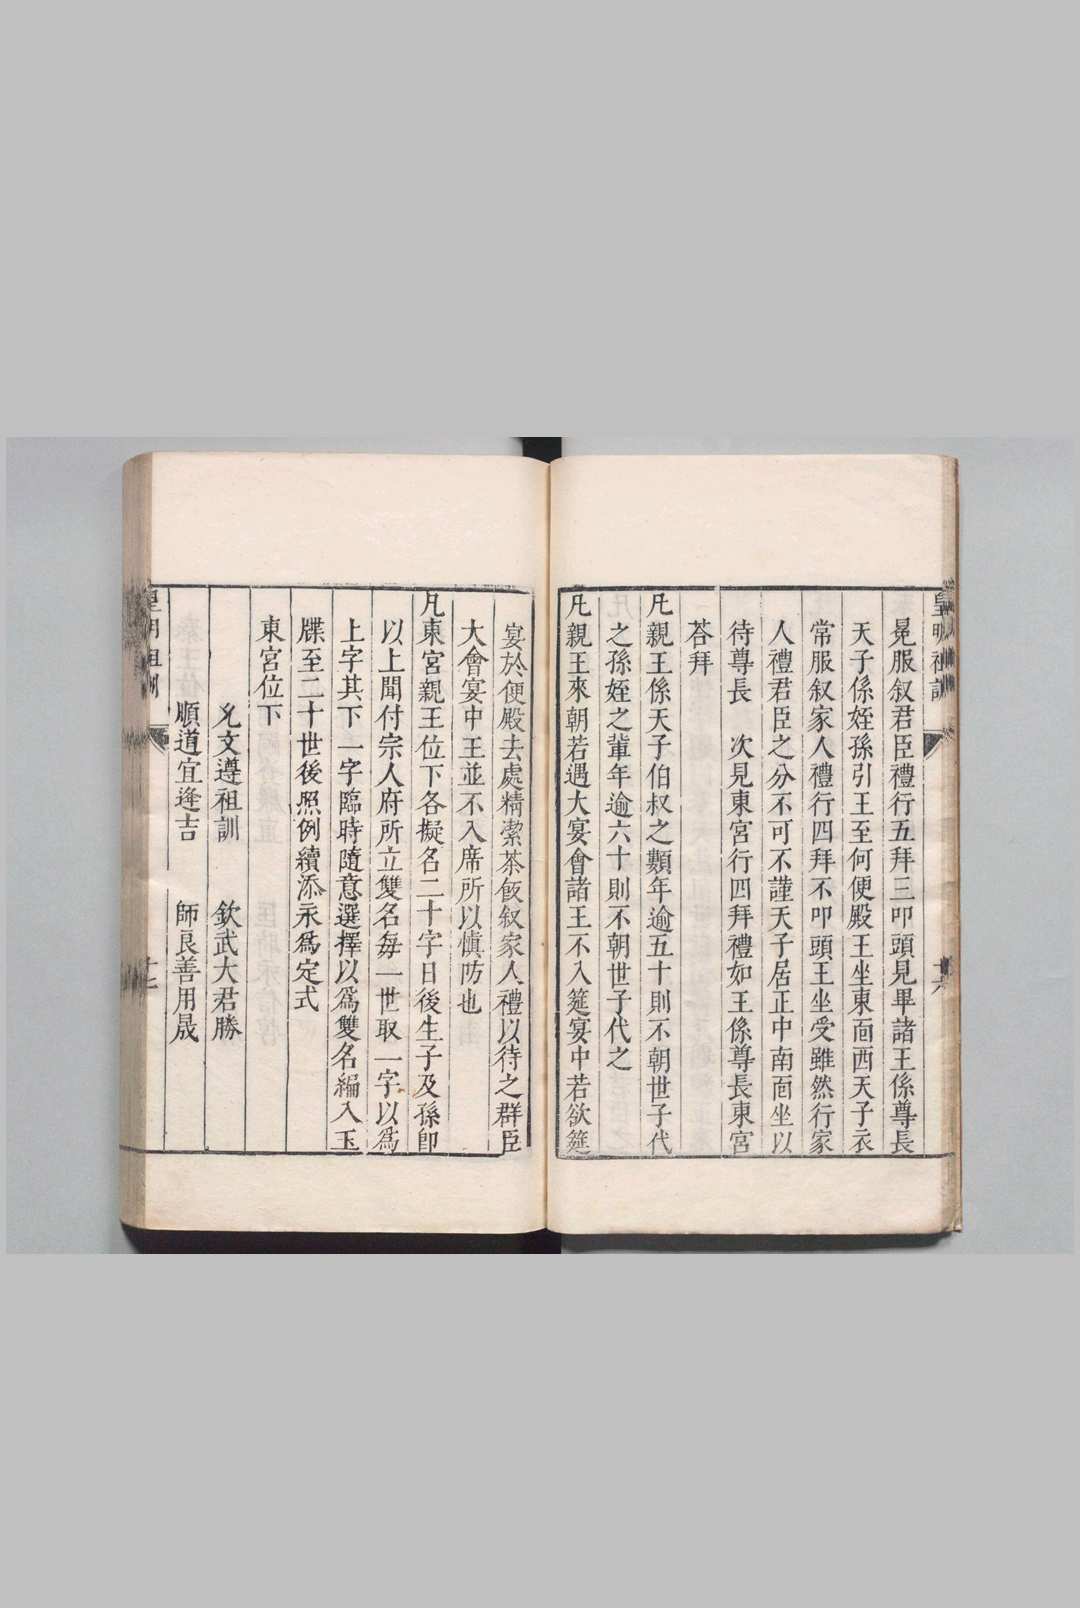 皇明祖訓
十六
冕服叙君臣禮行五拜三叩頭見畢諸王係尊長
天子係姪孫引王至何便殿王坐東靣西天子衣
常服叙家人禮行四拜不叩頭王坐受雖然行家
人禮君臣之分不可不謹天子居正中南靣坐以
待尊長　次見東宮行四拜禮如王係尊長東宮
答拜
凡親王係天子伯叔之類年逾五十則不朝世子代
之孫姪之輩年逾六十則不朝世子代之
凡親王來朝若遇大宴會諸王不入筵宴中若欲筵
宴於便殿去處精潔茶飯叙家人禮以待之群臣
大會宴中王並不入席所以慎防也
凡東宮親王位下各擬名二十字日後生子及孫卽
以上聞付宗人府所立雙名每一世取一字以爲
上字其下一字臨時隨意選擇以爲雙名編入玉
牒至二十世後照例續添永爲定式
東宮位下
允文遵祖訓　欽武大君勝
順道宜逢吉　師良善用晟
皇明祖訓
十七